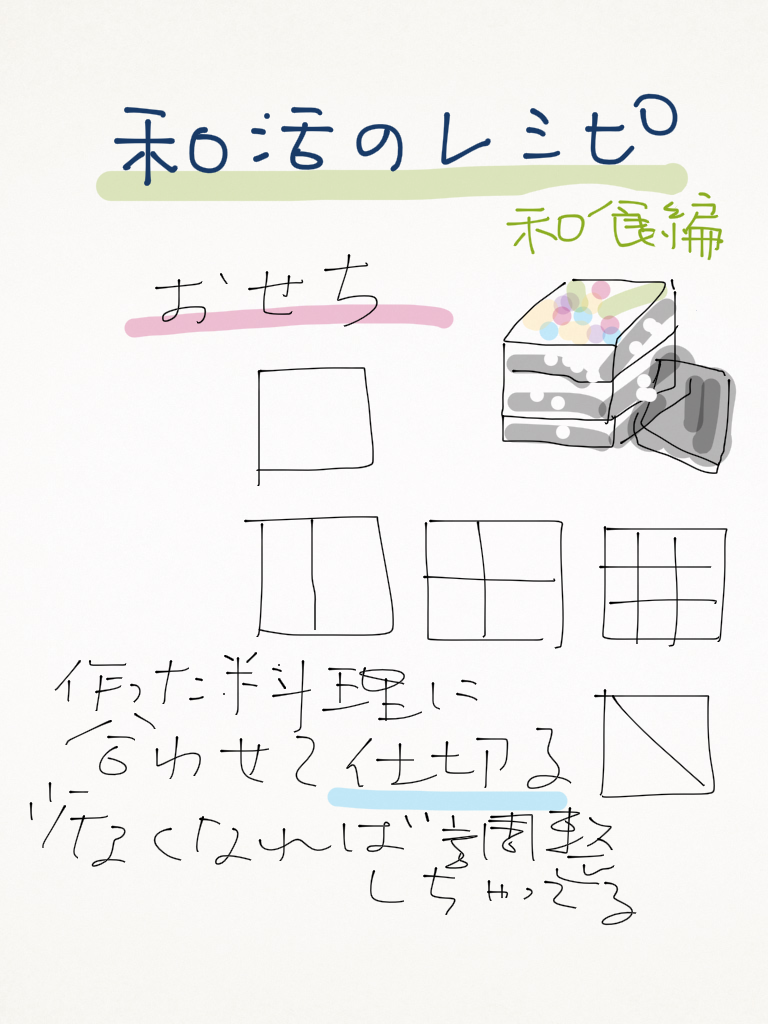 和活のレシピ
和食編
おせち
作った料理に
合わせて仕切る
少なくなれば調整
しちゃってる